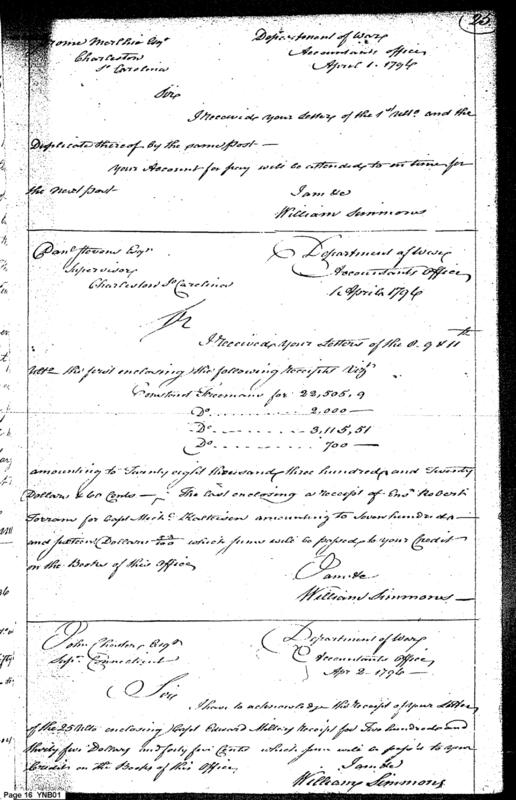 25
Department of War
Charleston
Accountants Office
So Carolina
April 1. 1794
Sir
I received your Letters of the 1st Ulto. and the
Duplicate thereof by the same post —
Your Account for pay will be attended to in time for
the next post
I am &c
William Simmons
Danl Stevens Esqr
Department of War
Supervisor
Accountants Office
Charleston So Carolina
1 April 1794
Sir
I received your Letters of the 8. 9 & 11th
Ulto the first enclosing the following receipts Vizt
Constant Freemans for 22,505,9
Do 2,000 —
Do 3,115,51
Do 700 —
amounting to Twenty eight thousand three hundred and Twenty
Dollars & 60 Cents — The last enclosing a receipt of Ensn Robert
for Capt Michl amounting to Seven hundred
and Dollars which sums will be passed to your Credit
on the Books of this Office
I am &c
William Simmons —
John Chester Esqr
Department of War
Supr Connecticut
Accountants Office
Apr 2. 1794 —
Sir
I have to acknowledge the receipt of your Letter
of the 25 Ulto enclosing Capt Edward Millers Receipt for Two hundred and
thirty five Dollars and forty five Cents which sum will be pass'd to your
Credit on the Books of this Office
I am &c
William Simmons
Page 16 YNB01